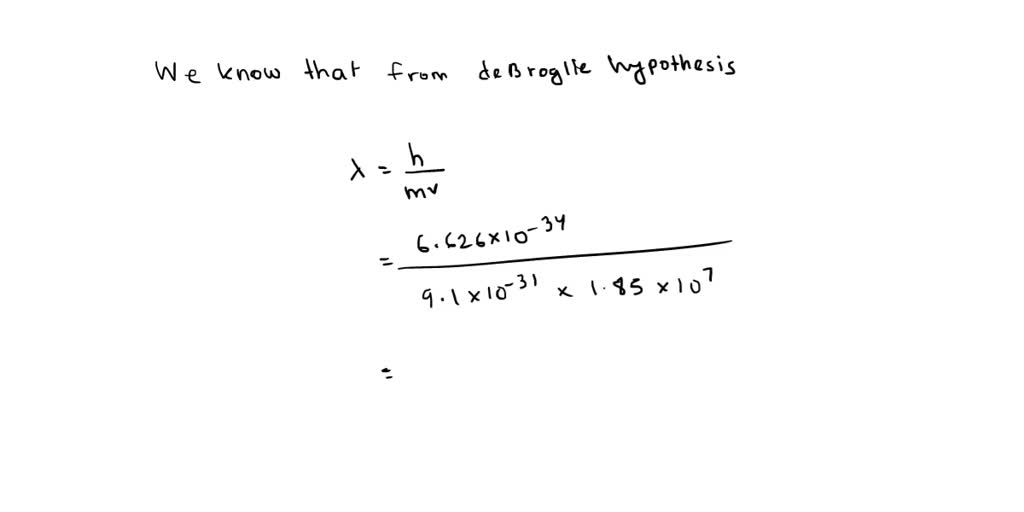 We know that from deBroglie hypothesis
λ = h / mv
= 6.626×10⁻³⁴ / 9.1×10⁻³¹ × 1.85×10⁷
=